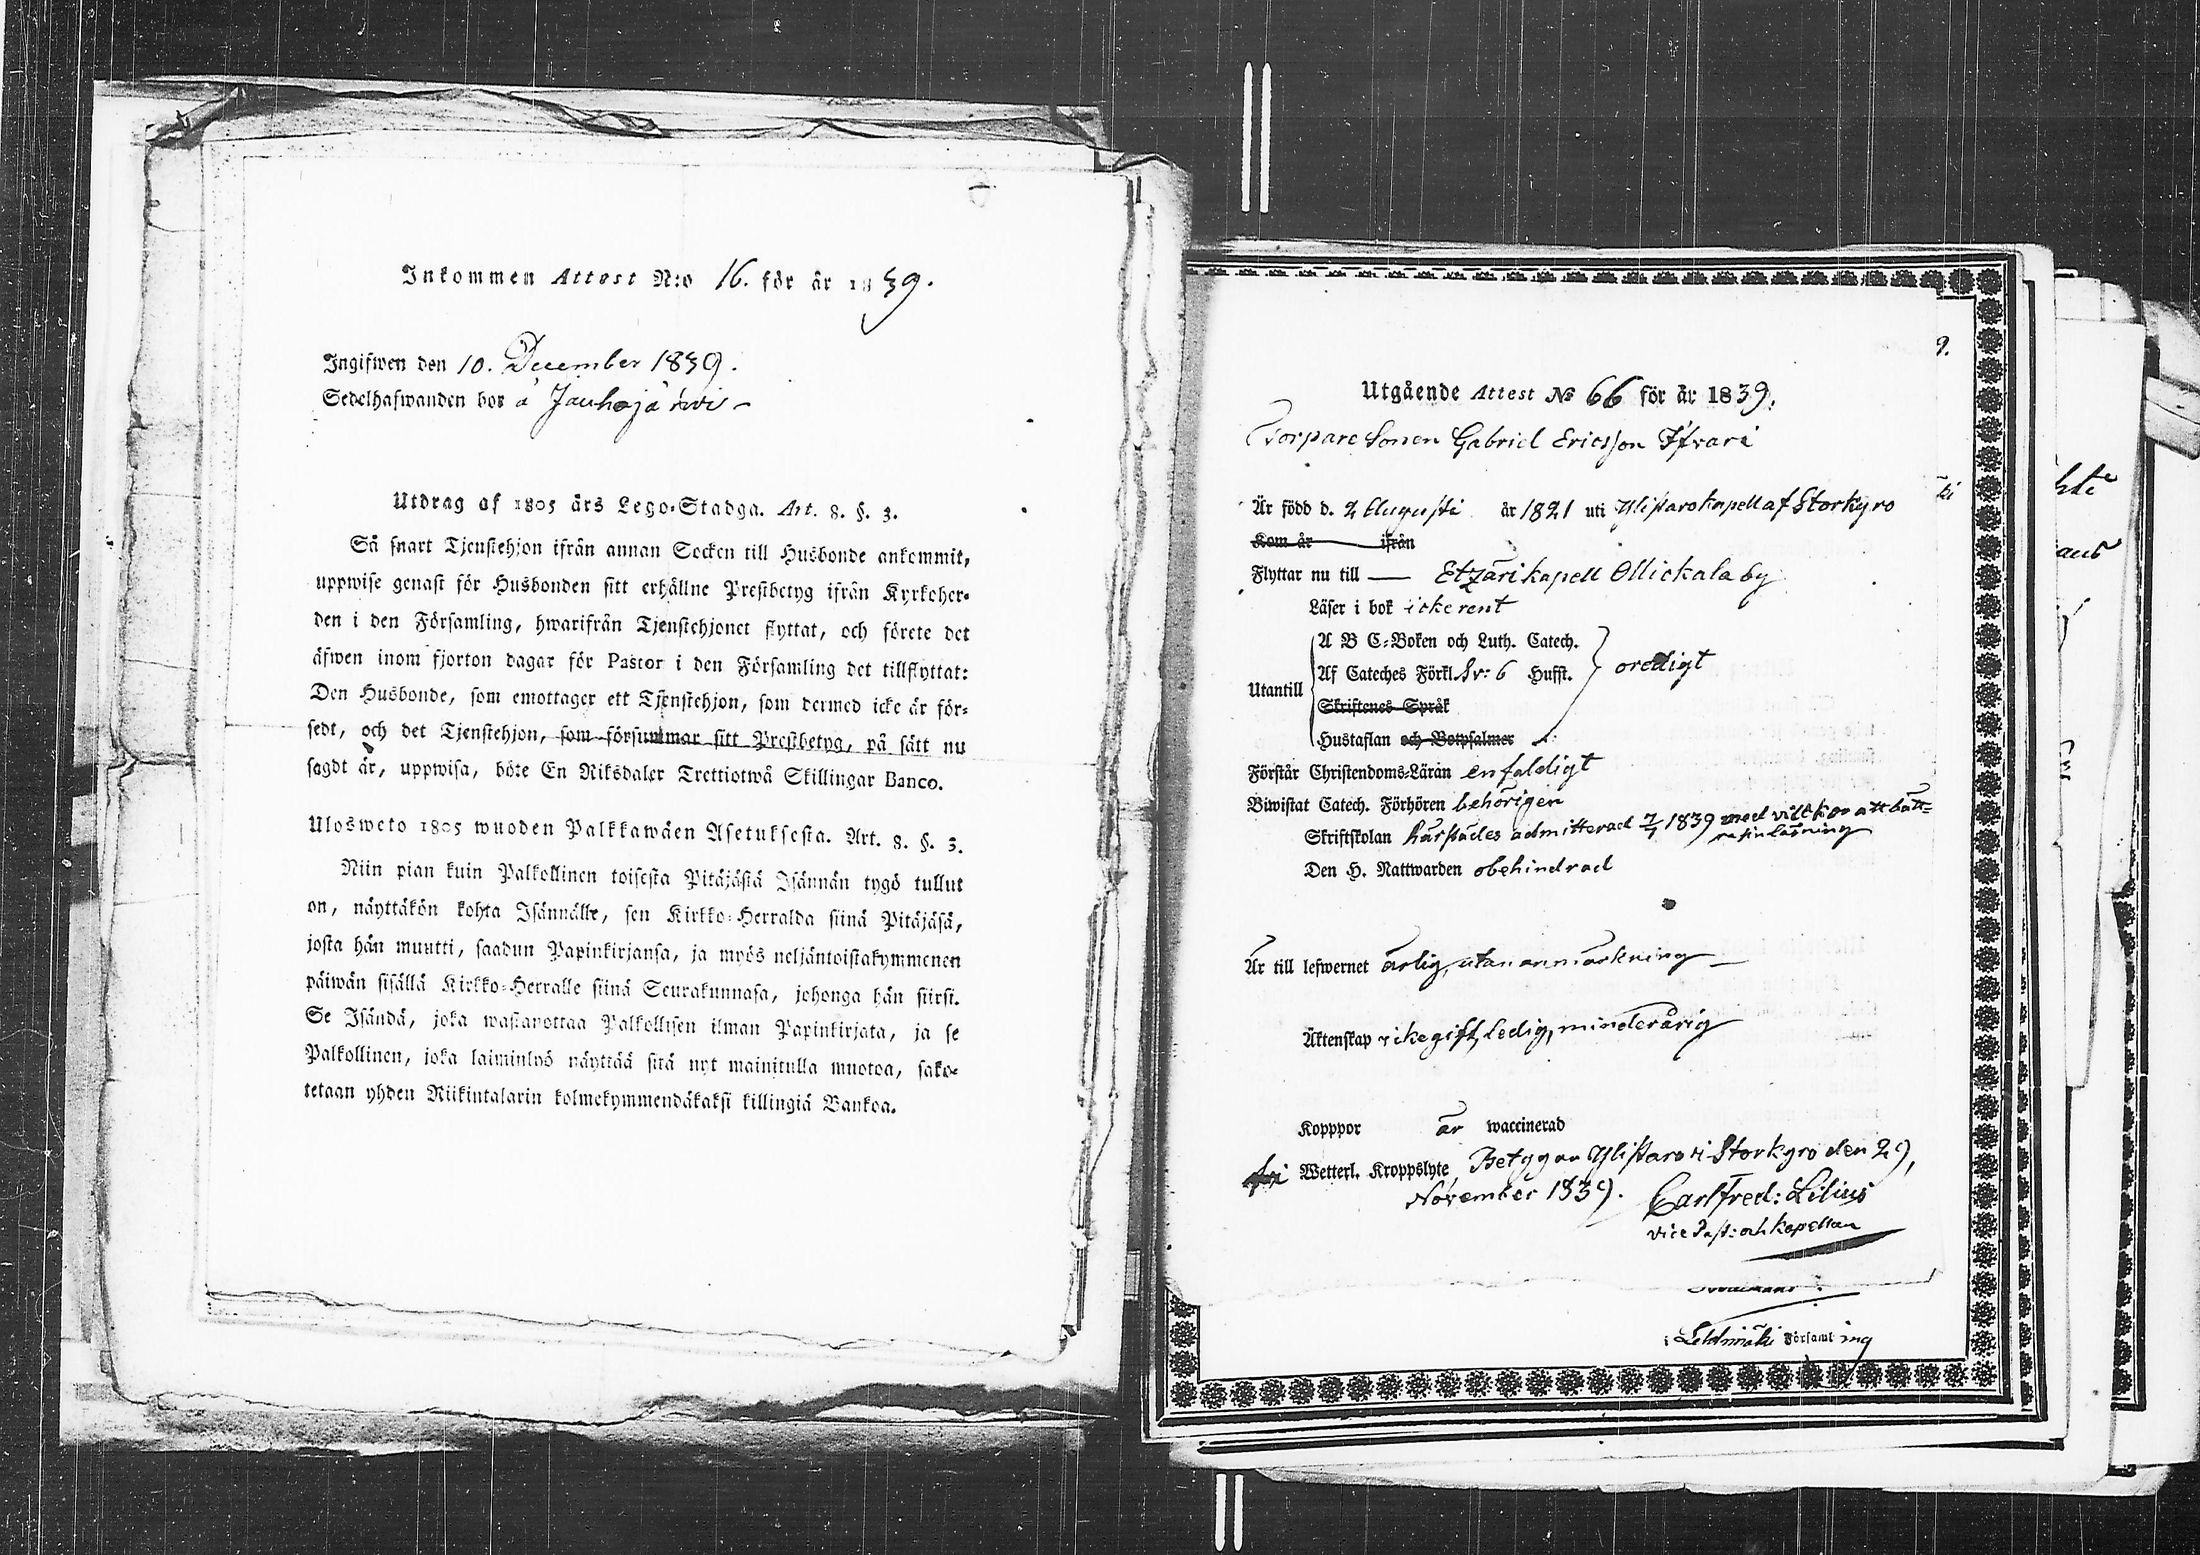 Inkommen Attest N:o 16. för år 1839.
Ingifwen den 10. December 1839.
Sedelhafwanden bor å Jauhojärwi
Utdrag af 1805 års Lego-Stadga. Art. 8. §. 3.
Så snart Tjenstehjon ifrån annan Socken till Husbonde ankommit,
uppwise genast för Husbonden sitt erhållne Prestbetyg ifrån Kyrkoher-
den i den Församling, hwarifrån Tjenstehjonet flyttat, och förete det
äfwen inom fjorton dagar för Pastor i den Församling det tillflyttat:
Den Husbonde, som emottager ett Tjenstehjon, som dermed icke är för-
sedt, och det Tjenstehjon, som försummar sitt Prestbetyg, på sätt nu
sagdt är, uppwisa, böte En Riksdaler Trettiotwå Skillingar Banco.
Ulosweto 1805 wuoden Palkkawäen Asetuksesta. Art. 8. §. 3.
Niin pian kuin Palkollinen toisesta Pitäjästä Isännän tygö tullut
on, näyttäkön kohta Isännälle, sen Kirkko-Herralda siinä Pitäjäsä,
josta hän muutti, saadun Papinkirjansa, ja myös neljäntoistakymmenen
päiwän sisällä Kirkko-Herralle siinä Seurakunnasa, johonga hän siirsi.
Se Isändä, joka wastanottaa Palkollisen ilman Papinkirjata, ja se
Palkollinen, joka laiminlyö näyttää sitä nyt mainitulla muotoa, sako-
tetaan yhden Riikintalarin kolmekymmendäkaksi killingiä Bankoa.
9.
Utgående Attest No 66 för år 1839.
Torpare Sonen Gabriel Ericsson Ifvari
Är född d. 2 Augusti år 1821 uti Ylistaro kapell af Storkyro
Kom år ifrån
Flyttar nu till — Etzäri kapell Ollickala by
Läser i bok icke rent
A B C-Boken och Luth. Catech.
Utantill Af Cateches Förkl. Sv: 6 Hufst. oredigt
Skriftenes Språk
Hustaflan och Botpsalmer
Förstår Christendoms-Läran enfaldigt
Biwistat Catech. Förhören behörigen
Skriftskolan härstädes admitterad 7/7 1839 med vilkor att bätt-
ra sin läsning
Den H. Nattwarden obehindrad
Är till lefwernet ärlig, utan anmärkning
Äktenskap icke gift, Ledig, minderårig
Kopppor är waccinerad
fri Wetterl. Kroppslyte Betygar Ylistaro i Storkyro den 29
November 1839. Carl Fred: Lilius
vice Past: och kapellan
i Lehdmäki Församling